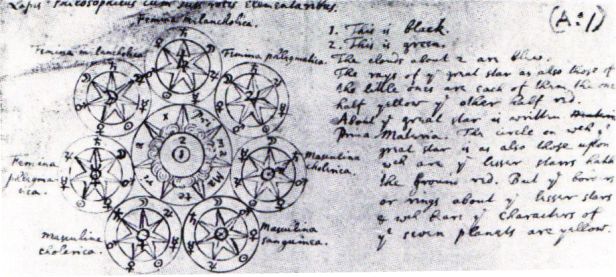 Lapis Philosophicus cum suis rotis Elementaribus.
(A:1)
Femina melancholica.
Femina melancholica
Femina phlegmatica
Femina phlegmatica.
Masculina cholerica.
masculina cholerica
Masculina sanguinea.
1. This is black.
2. This is green.
The clouds about 2 are blue.
The rays of yͤ great star as also those of
the little ones are each of them the one
half yellow yͤ other half red.
About yͤ great star is written
Prima Materia. The circle on wch yͤ
great star is as also those upon
wch are yͤ lesser starrs have
the ground red. But yͤ borders
or rings about yͤ lesser stars
& wch bears yͤ characters of
yͤ seven planets are yellow.